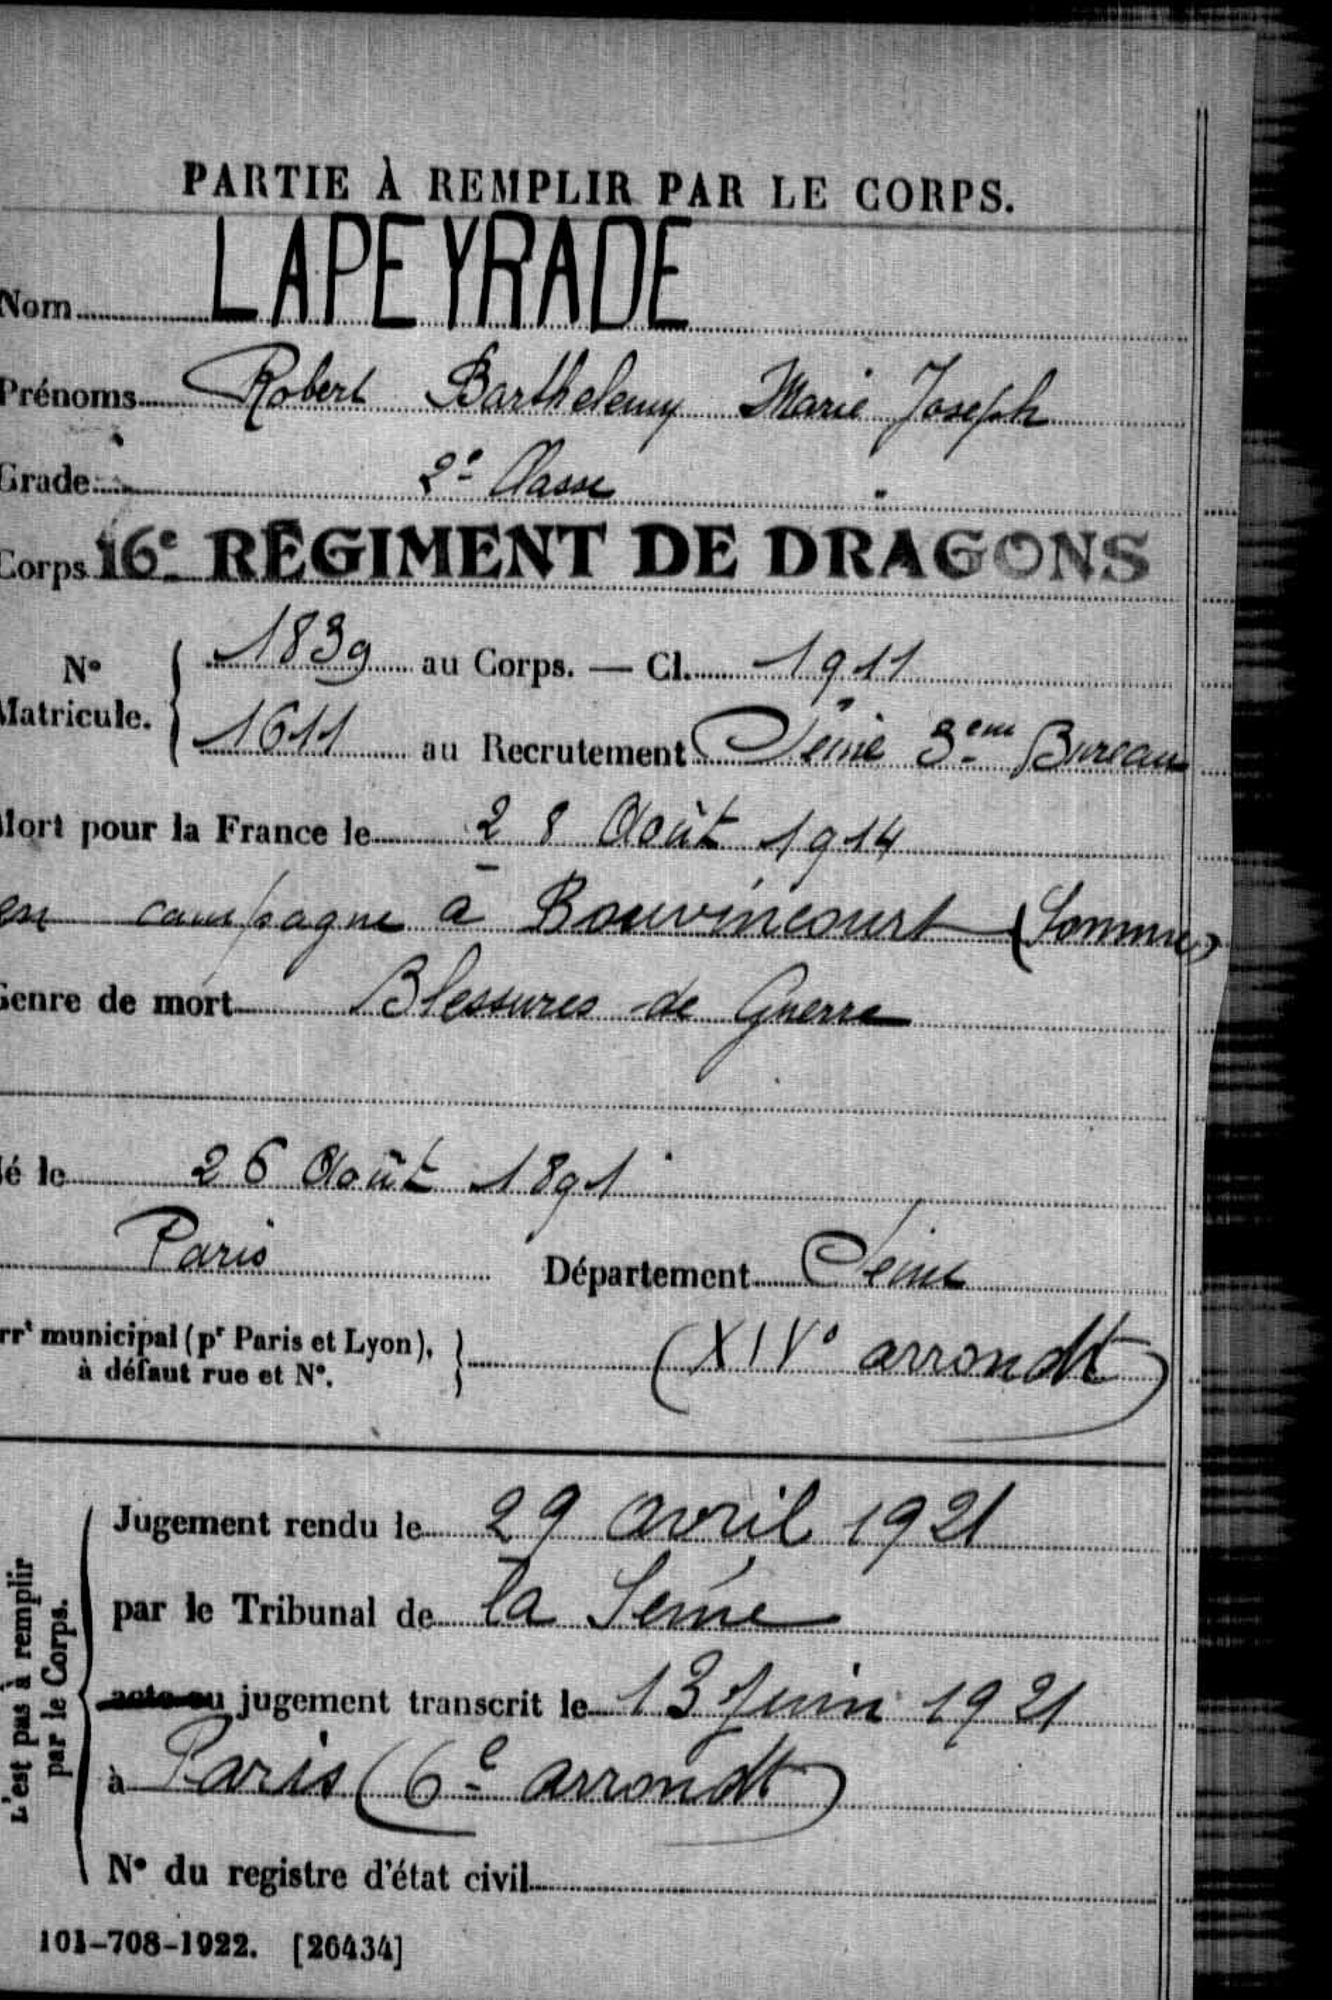 PARTIE À REMPLIR PAR LE CORPS.
Nom LAPEYRADE
Prénoms Robert Barthelemy Marie Joseph
Grade 2e Classe
Corps 16e RÉGIMENT DE DRAGONS
N° Matricule.
1839 au Corps. — Cl. 1911
1611 au Recrutement Seine 3ème Bureau
Mort pour la France le 28 Août 1914
en campagne à Bouvincourt (Somme)
Genre de mort Blessures de Guerre
Né le 26 Août 1891
Paris Département Seine
Arrt municipal (pr Paris et Lyon), à défaut rue et N°. (XIVe arrondt)
L'est pas à remplir par le Corps.
Jugement rendu le 29 avril 1921
par le Tribunal de la Seine
acte ou jugement transcrit le 13 Juin 1921
à Paris (6e arrondt)
N° du registre d'état civil
101-708-1922. [26434]